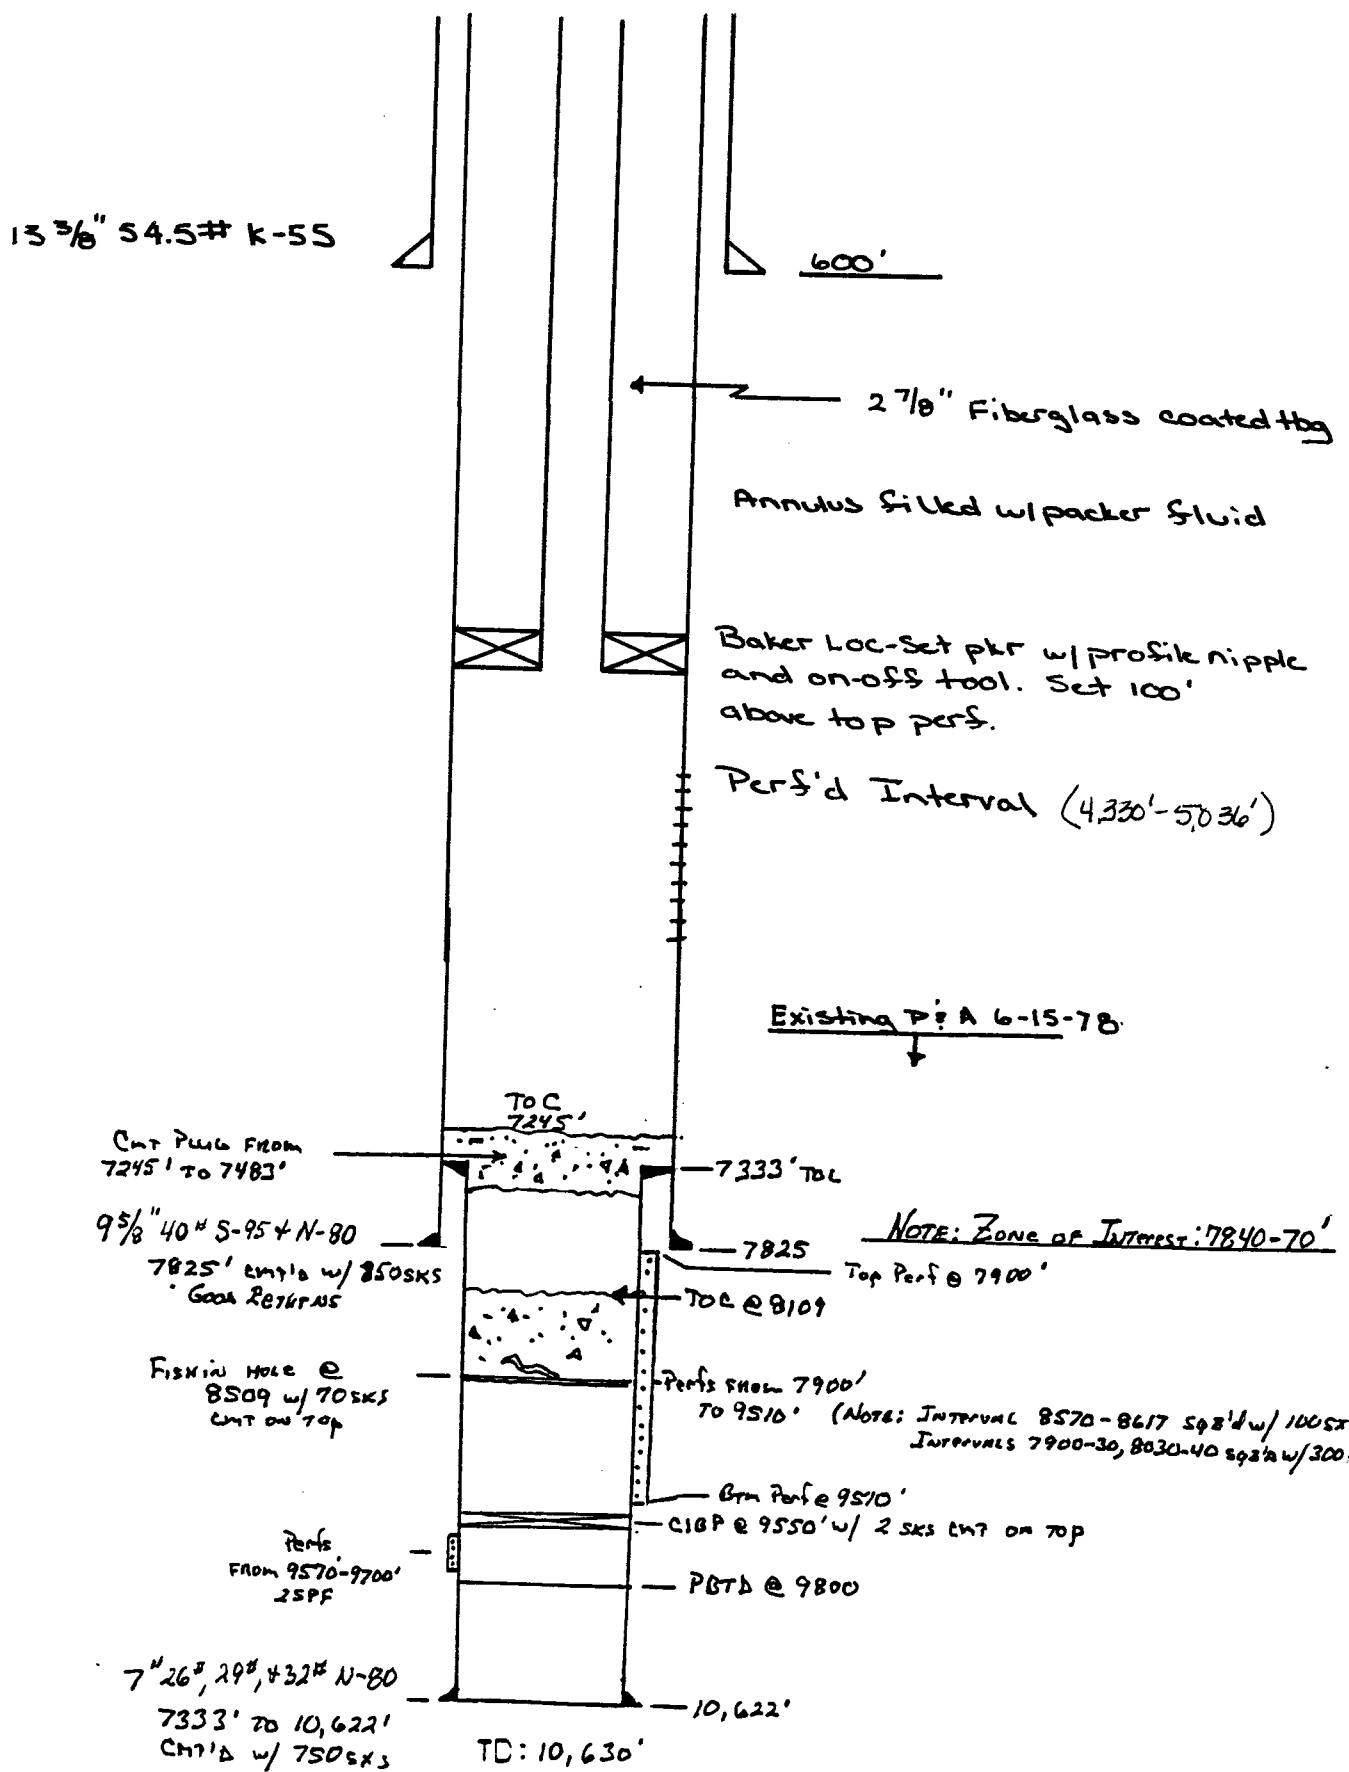 13 3/8" 54.5# K-55
600'
2 7/8" Fiberglass coated tbg
Annulus filled w/packer fluid
Baker Loc-Set pkr w/profile nipple
and on-off tool. Set 100'
above top perf.
Perf'd Interval (4,330'-5,036')
Existing P & A 6-15-78
TOC
7245'
CMT PLUG FROM
7245' TO 7483'
7333' TOL
9 5/8" 40# S-95 + N-80
7825' CMT'D w/ 850SKS
GOOD RETURNS
7825
NOTE: ZONE OF INTEREST: 7840-70'
Top Perf @ 7900'
TOC @ 8109
FISH IN HOLE @
8509 w/ 70 SKS
CMT ON TOP
Perfs FROM 7900'
TO 9510' (NOTE: INTERVAL 8570-8617 SQZ'd w/ 100SX
INTERVALS 7900-30, 8030-40 SQZ'D w/ 300
BTM Perf @ 9510'
CIBP @ 9550' w/ 2 SKS CMT ON TOP
Perfs
FROM 9570'-9700'
2SPF
PBTD @ 9800
7" 26#, 29#, +32# N-80
7333' TO 10,622'
CMT'D w/ 750 SXS
10,622'
TD: 10,630'